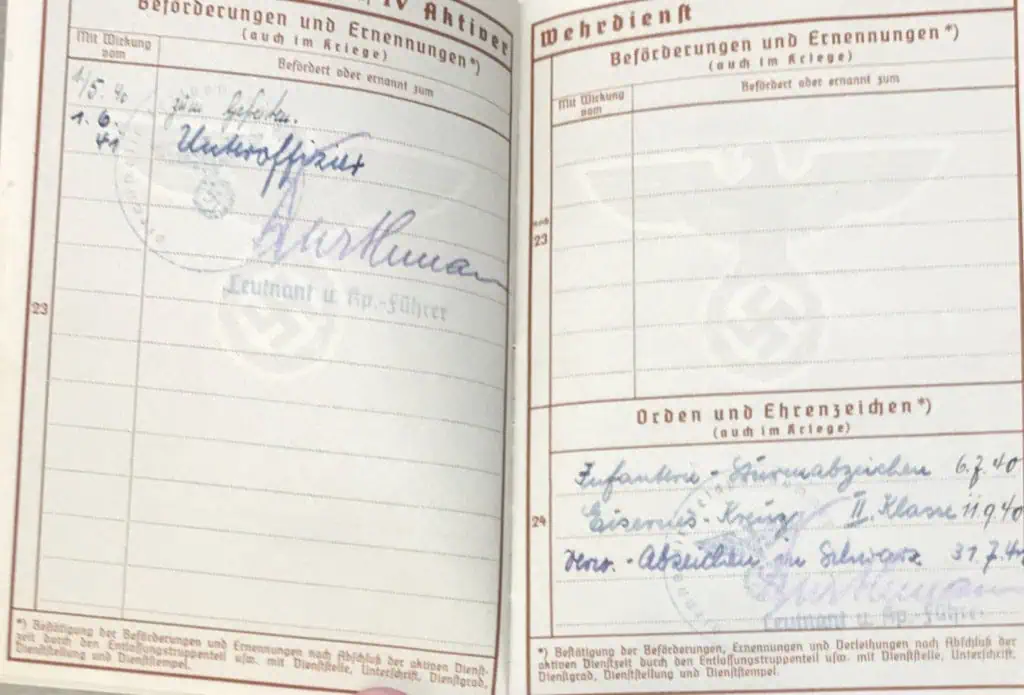 IV Aktiver
Beförderungen und Ernennungen*)
(auch im Kriege)
Mit Wirkung
vom
Befördert oder ernannt zum
1/5. 40
zum Gefreiten.
1. 6.
41
Unteroffizier
Leutnant u. Kp.-Führer
23
*) Bestätigung der Beförderungen und Ernennungen nach Abschluß der aktiven Dienst-
zeit durch den Entlassungstruppenteil usw. mit Dienststelle, Unterschrift, Dienstgrad,
Dienststellung und Dienststempel.
Wehrdienst
Beförderungen und Ernennungen*)
(auch im Kriege)
Mit Wirkung
vom
Befördert oder ernannt zum
noch
23
Orden und Ehrenzeichen*)
(auch im Kriege)
Infanterie - Sturmabzeichen 6.7.40
Eisernes - Kreuz II. Klasse 11 9 40
24
Verw. - Abzeichen in Schwarz 31.7.
Leutnant u. Kp.-Führer
*) Bestätigung der Beförderungen, Ernennungen und Verleihungen nach Abschluß der
aktiven Dienstzeit durch den Entlassungstruppenteil usw. mit Dienststelle, Unterschrift,
Dienstgrad, Dienststellung und Dienststempel.